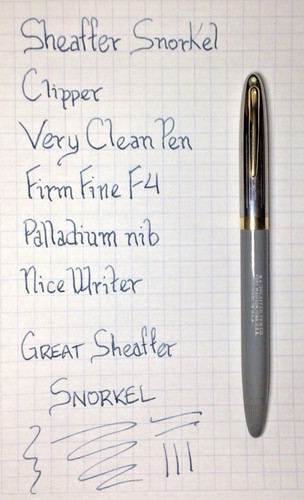 Sheaffer Snorkel
Clipper
Very Clean Pen
Firm Fine F4
Palladium nib
Nice Writer
GREAT Sheaffer
SNORKEL